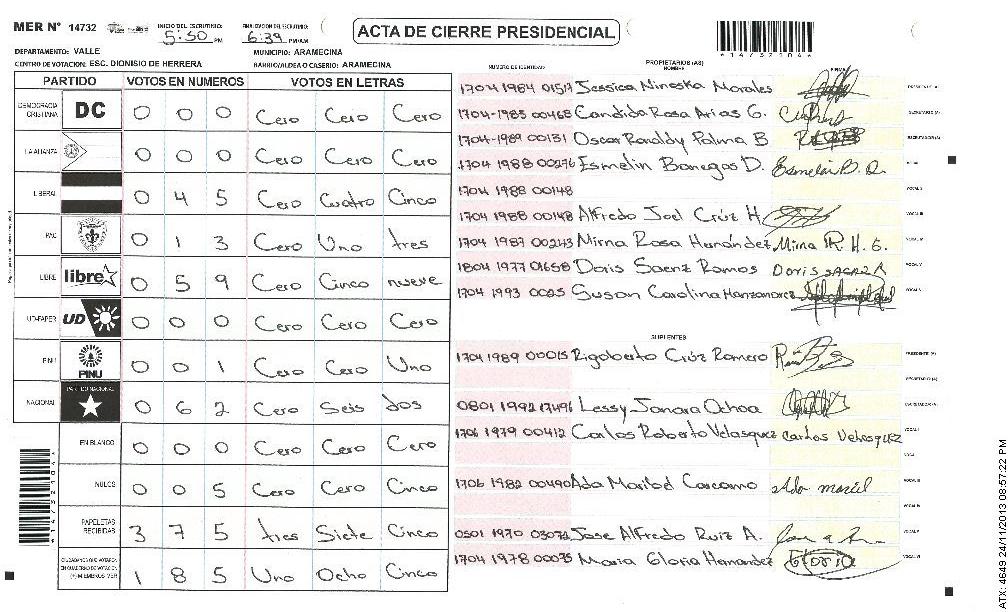 MER N° 14732 INICIO DEL ESCRUTINIO: 5:50 PM FINALIZACION DEL ESCRUTINIO: 6:39 PM/AM
ACTA DE CIERRE PRESIDENCIAL
DEPARTAMENTO: VALLE MUNICIPIO: ARAMECINA
CENTRO DE VOTACION: ESC. DIONISIO DE HERRERA BARRIO/ALDEA O CASERIO: ARAMECINA
PARTIDO VOTOS EN NUMEROS VOTOS EN LETRAS
DEMOCRACIA CRISTIANA DC 0 0 0 Cero Cero Cero
LA ALIANZA 0 0 0 Cero Cero Cero
LIBERAL 0 4 5 Cero Cuatro Cinco
PAC 0 1 3 Cero Uno tres
LIBRE libre 0 5 9 Cero Cinco nueve
UD-FAPER UD 0 0 0 Cero Cero Cero
PINU PINU 0 0 1 Cero Cero Uno
NACIONAL PARTIDO NACIONAL 0 6 2 Cero Seis dos
EN BLANCO 0 0 0 Cero Cero Cero
NULOS 0 0 5 Cero Cero Cinco
PAPELETAS RECIBIDAS 3 7 5 tres Siete Cinco
CIUDADANOS QUE VOTARON EN CUADERNO DE VOTACION (+) MIEMBROS MER 1 8 5 Uno Ocho Cinco
NUMERO DE IDENTIDAD PROPIETARIOS (AS) NOMBRE FIRMA
Jessica Nineska Morales PRESIDENTE (A)
1704-1985-00468 Candida Rosa Arias G. SECRETARIO (A)
1704-1989-00131 Oscar Randdy Palma B ESCRUTADOR (A)
1704 1988 00276 Esmelin Banegas D. Esmelin B. D.
1704 1988 00148
1704 1988 00148 Alfredo Joel Crúz H.
1704 1987 00243 Mirna Rosa Hernández Mirna R. H. G.
1804 1977 01658 Doris Saenz Ramos
1704 1993 0025 Susan Carolina
SUPLENTES
1704 1989 00015 Rigoberto Crúz Romero PRESIDENTE (A)
SECRETARIO (A)
0801 1992 17496 Lessy Janara Ochoa ESCRUTADOR (A)
1706 1979 00412 Carlos Roberto Velasquez Carlos Velasquez
1706 1982 00490 Ada Maribel Carcamo
0501 1970 03072 Jose Alfredo Ruiz A.
1704 1978 00075 Maria Gloria Hernandez Gloria
ATX: 4649 24/11/2013 08:57:22 PM